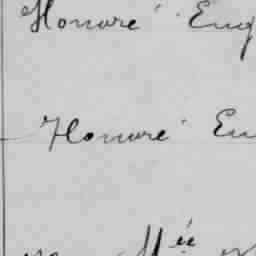 Honoré Eug
Honoré Eu
Mée